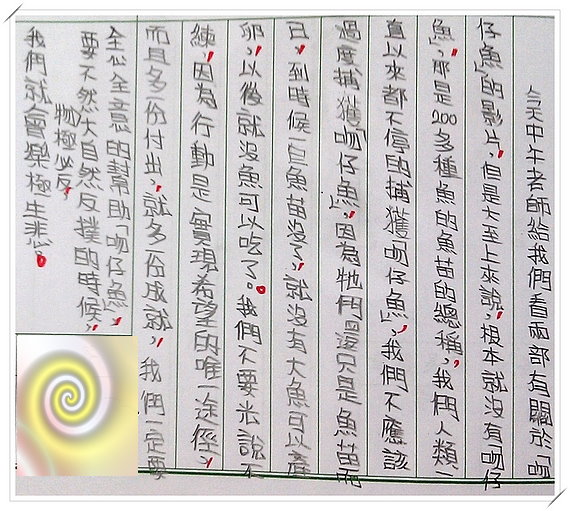 今天中午老師給我們看兩部有關於「吻
仔魚」的影片,但是大至上來說,根本就沒有吻仔
魚」,那是200多種魚的魚苗的總稱,我們人類一
直以來都不停的捕獲吻仔魚」,我們不應該
過度捕獲「吻仔魚」,因為牠們還只是魚苗而
已,到時候一旦魚苗沒了,就沒有大魚可以產
卵,以後就沒魚可以吃了。我們不要光說不
練,因為行動是實現希望的唯一途徑,
而且多一份付出,就多一份成就,我們一定要
全心全意的幫助「吻仔魚」,
要不然大自然反撲的時候,
物極必反,
我們就會樂極生悲。